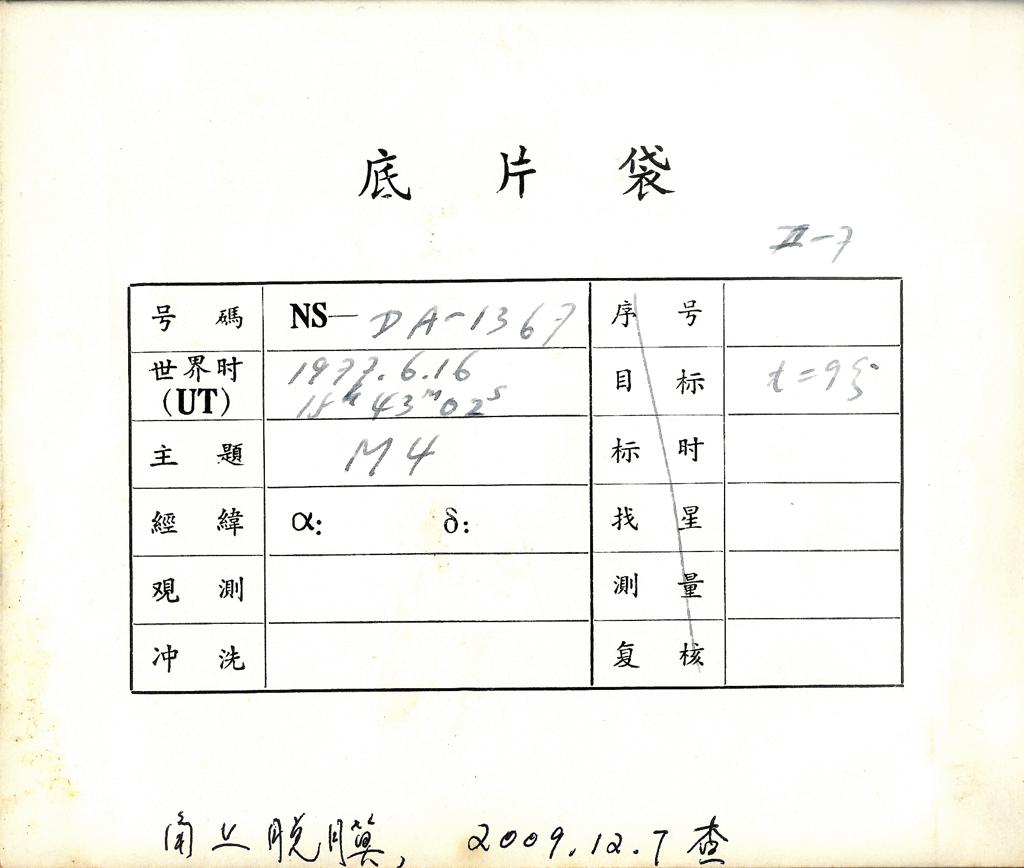 底 片 袋
II-7
号 碼 NS— DA-1367 序 号
世界时 (UT) 1977.6.16 目 标 t=9分
15h43m02s
主 題 M4 标 时
經 緯 α: δ: 找 星
观 測 測 量
冲 洗 复 核
角上脱膜, 2009.12.7查